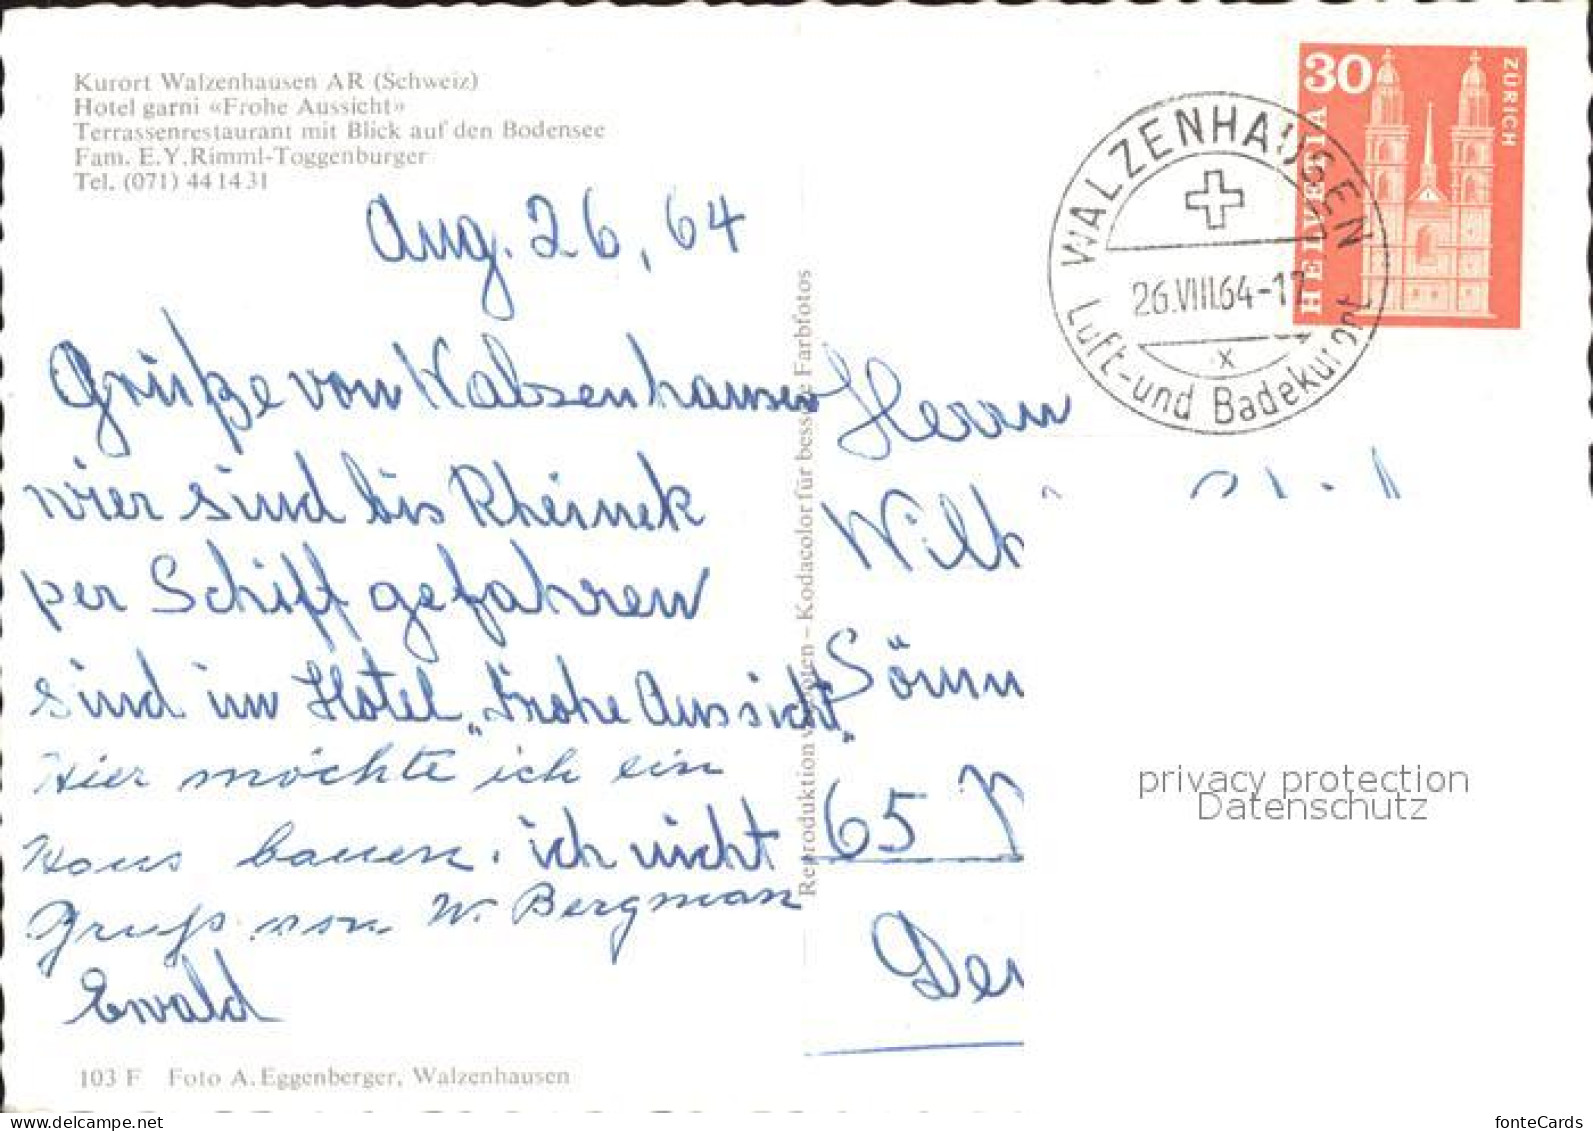 Kurort Walzenhausen AR (Schweiz)
Hotel garni «Frohe Aussicht»
Terrassenrestaurant mit Blick auf den Bodensee
Fam. E.Y.Rimml-Toggenburger
Tel. (071) 44 14 31
Aug. 26, 64
Grüße von Walsenhausen
wier sind bis Rheinek
per Schiff gefahren
sind im Hotel „Frohe Aussicht"
Hier möchte ich ein
Haus bauen. ich nicht
Gruß von W. Bergman
Ewald
103 F Foto A. Eggenberger, Walzenhausen
Reproduktion verboten – Kodacolor für bessere Farbfotos
30
ZÜRICH
HELVETIA
WALZENHAUSEN
26.VIII.64-17
x
Luft- und Badekurort
Herrn
65
privacy protection
Datenschutz
fonteCards